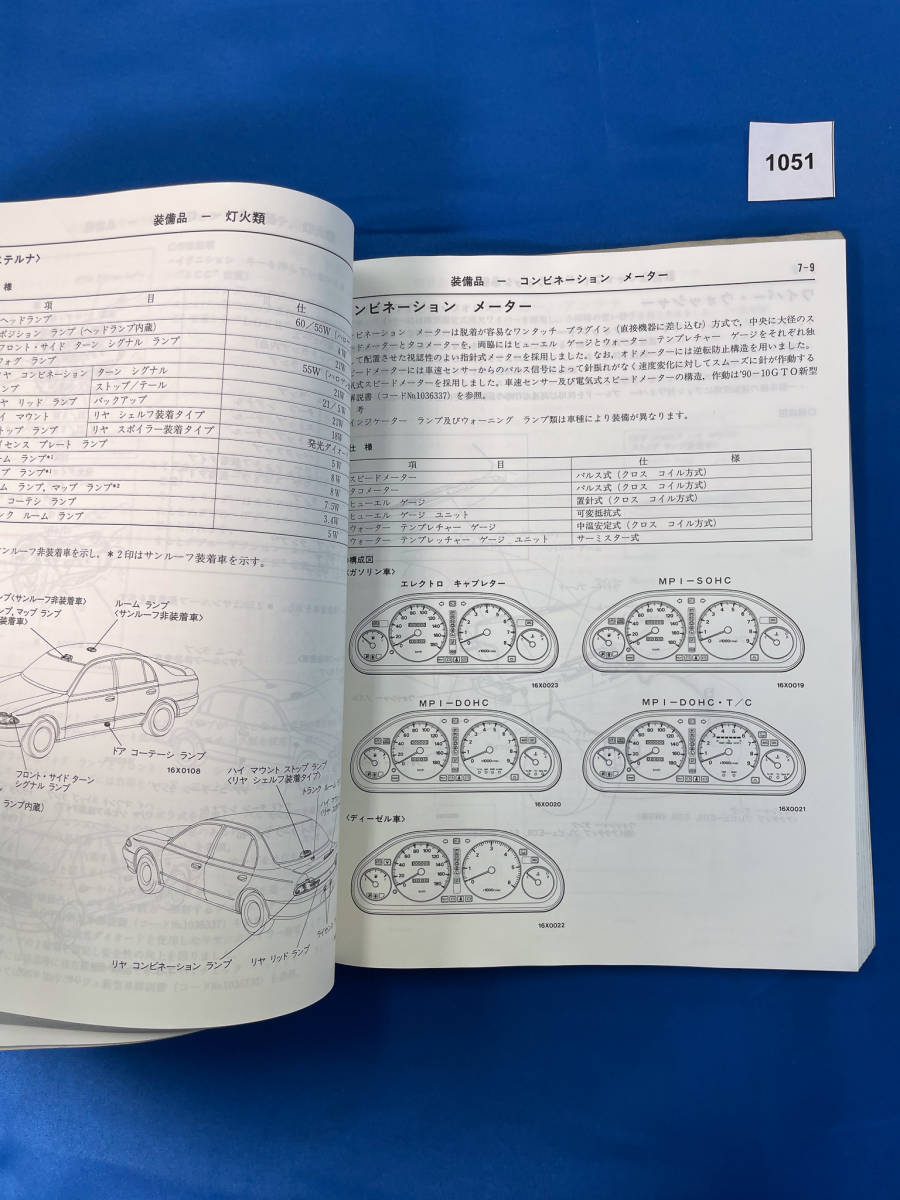 1051
装備品 － 灯火類
テルナ〉
様
項 目 仕
ヘッドランプ 60／55W
ポジション ランプ (ヘッドランプ内蔵)
フロント・サイド ターン シグナル ランプ
フォグ ランプ 55W
コンビネーション ターン シグナル 21W
ランプ ストップ／テール 21／5W
リヤ リッド ランプ バックアップ 21W
ハイ マウント リヤ シェルフ装着タイプ 18W
ストップ ランプ リヤ スポイラー装着タイプ
ライセンス プレート ランプ 5W
ルーム ランプ*1 8W
ランプ*1 8W
ルーム ランプ, マップ ランプ*2 7.5W
コーテシ ランプ 3.4W
トランク ルーム ランプ 5W
サンルーフ非装着車を示し，＊2印はサンルーフ装着車を示す。
〈サンルーフ非装着車〉
ランプ, マップ ランプ
装着車〉
ルーム ランプ
〈サンルーフ非装着車〉
ドア コーテーシ ランプ
16X0108
フロント・サイド ターン
シグナル ランプ
ランプ内蔵)
ハイ マウント ストップ ランプ
〈リヤ シェルフ装着タイプ〉
トランク ルーム
リヤ リッド ランプ
リヤ コンビネーション ランプ
装備品 － コンビネーション メーター
7-9
ンビネーション メーター
ンビネーション メーターは脱着が容易なワンタッチ プラグイン (直接機器に差し込む) 方式で，中央に大径のス
ードメーターとタコメーターを，両脇にはヒューエル ゲージとウォーター テンプレチャー ゲージをそれぞれ独
して配置させた視認性のよい指針式メーターを採用しました。なお，オドメーターには逆転防止構造を用いました。
ードメーターには車速センサーからのパルス信号によって針振れがなく速度変化に対してスムーズに針が作動する
気式スピードメーターを採用しました。車速センサー及び電気式スピードメーターの構造，作動は'90－10GTO新型
解説書 (コード№1036337) を参照。
考
インジケーター ランプ及びウォーニング ランプ類は車種により装備が異なります。
仕 様
項 目 仕 様
スピードメーター パルス式 (クロス コイル方式)
タコメーター パルス式 (クロス コイル方式)
ヒューエル ゲージ 置針式 (クロス コイル方式)
ヒューエル ゲージ ユニット 可変抵抗式
ウォーター テンプレチャー ゲージ 中温安定式 (クロス コイル方式)
ウォーター テンプレッチャー ゲージ ユニット サーミスター式
構成図
〈ガソリン車〉
エレクトロ キャブレター
MPI－SOHC
16X0023
16X0019
MPI－DOHC
MPI－DOHC・T／C
16X0020
16X0021
〈ディーゼル車〉
16X0022